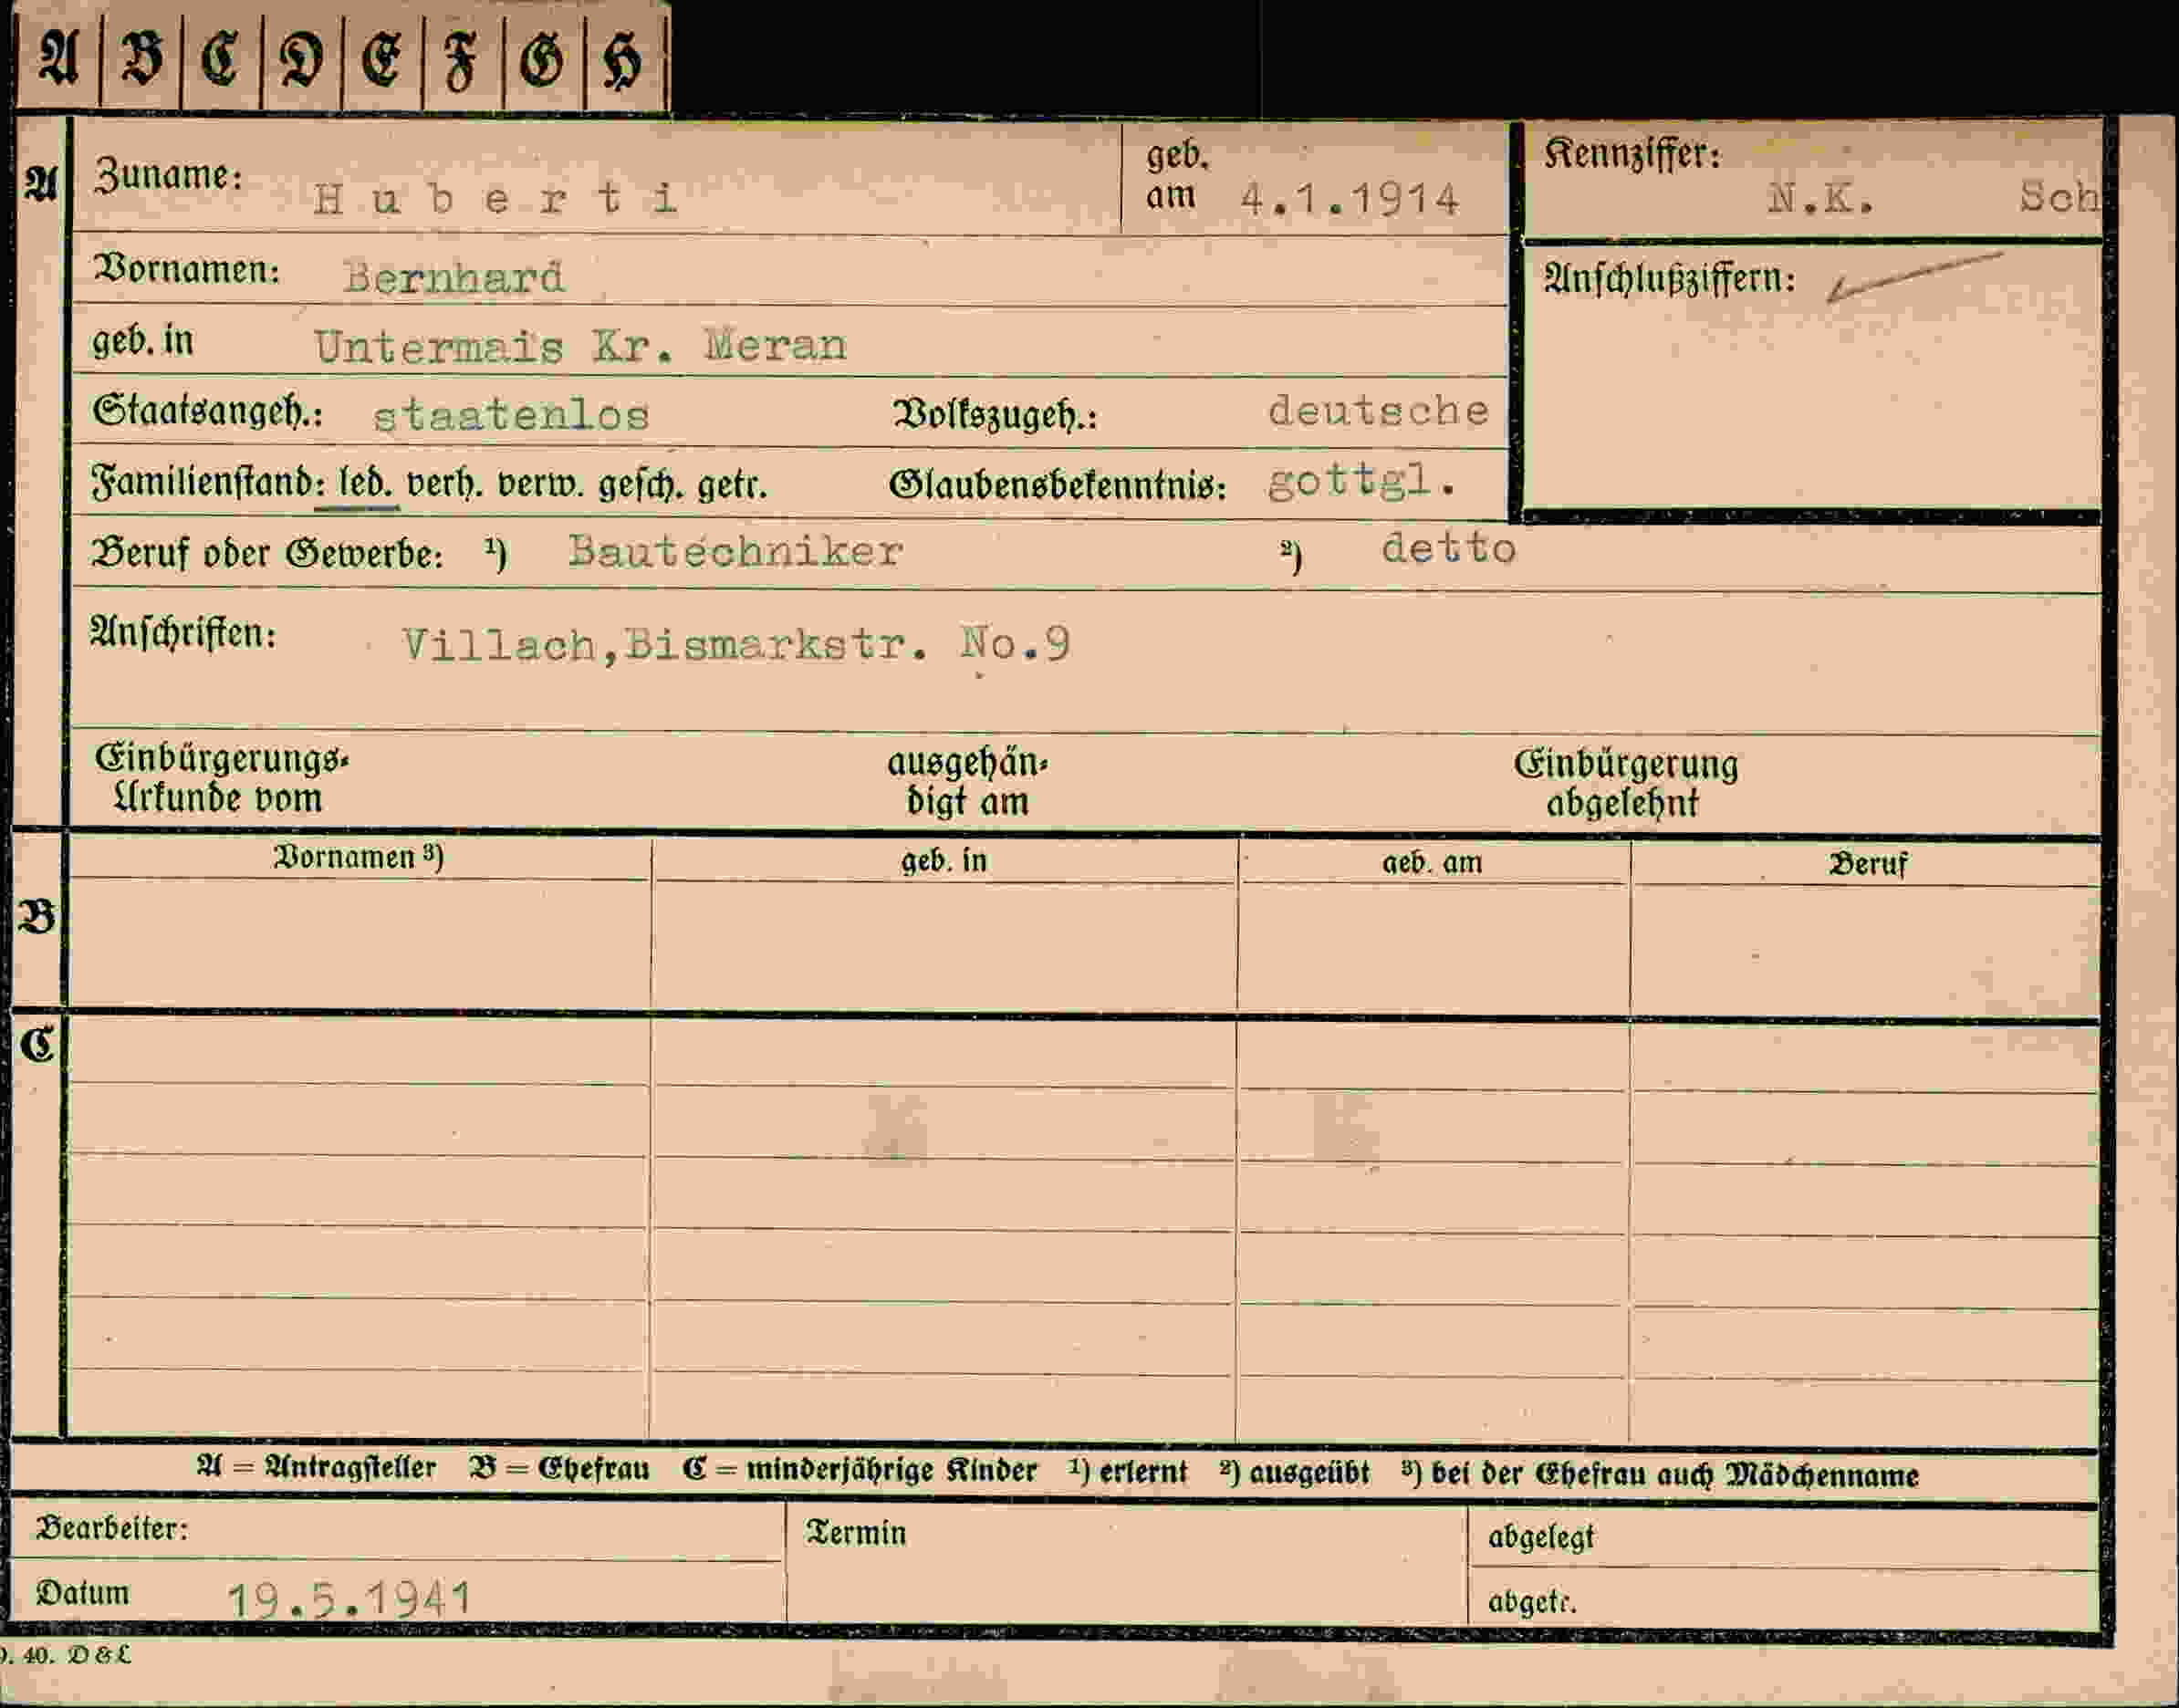 A B C D E F G H
A Zuname: Huberti geb. am 4.1.1914 Kennziffer: N.K. Sch
Vornamen: Bernhard Anschlußziffern:
geb. in Untermais Kr. Meran
Staatsangeh.: staatenlos Volkszugeh.: deutsche
Familienstand: led. verh. verw. gesch. getr. Glaubensbekenntnis: gottgl.
Beruf oder Gewerbe: ¹) Bautechniker ²) detto
Anschriften: Villach,Bismarkstr. No.9
Einbürgerungs- ausgehän- Einbürgerung
Urkunde vom digt am abgelehnt
Vornamen ³) geb. in geb. am Beruf
B
C
A = Antragsteller B = Ehefrau C = minderjährige Kinder ¹) erlernt ²) ausgeübt ³) bei der Ehefrau auch Mädchenname
Bearbeiter: Termin abgelegt
Datum 19.5.1941 abgetr.
40. D & L